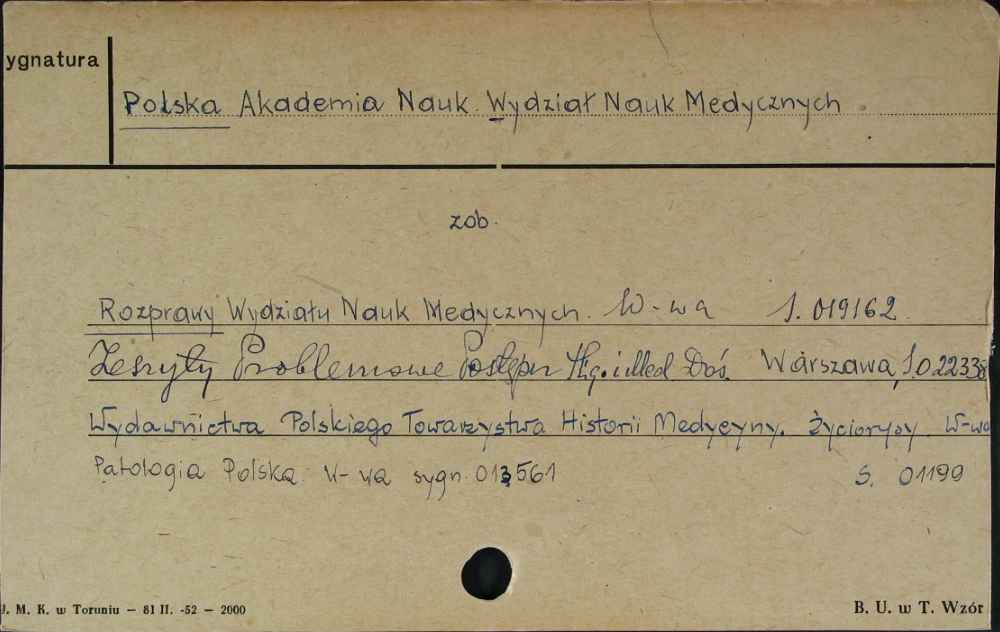 ygnatura
Polska Akademia Nauk. Wydział Nauk Medycznych
zob.
Rozprawy Wydziału Nauk Medycznych. W-wa S. 019162.
Zeszyty Problemowe Postępu Hig. i Med. Doś. Warszawa, S. 022338
Wydawnictwa Polskiego Towarzystwa Historii Medycyny. Życiorysy. W-wa
Patologia Polska. W-wa sygn. 013561 S. 01199
U. M. K. w Toruniu — 81 II. -52 — 2000 B. U. w T. Wzór